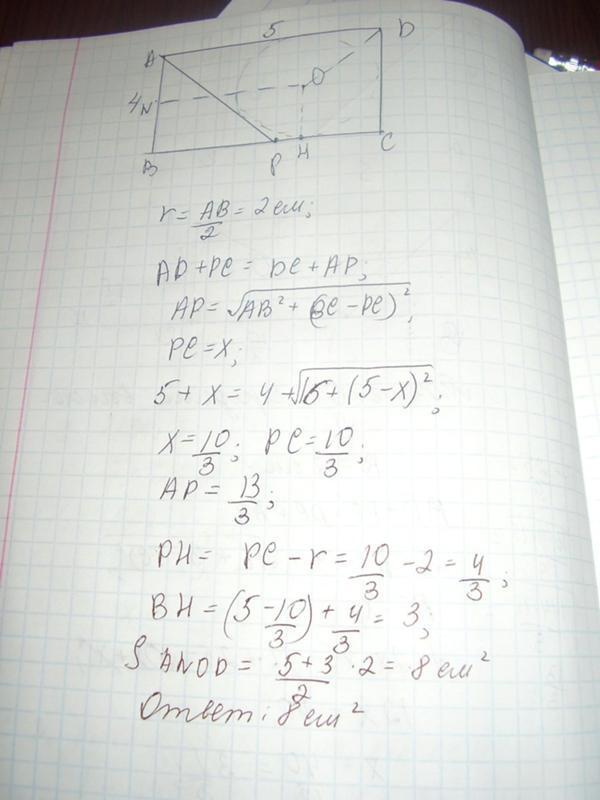 5 D
A
4 N O
B P H C
r = AB/2 = 2 см;
AD + PC = DC + AP;
AP = √(AB² + (BC - PC)²);
PC = x;
5 + x = 4 + √(16 + (5 - x)²);
x = 10/3; PC = 10/3;
AP = 13/3;
PH = PC - r = 10/3 - 2 = 4/3;
BH = (5 - 10/3) + 4/3 = 3;
S ANOD = (5 + 3)/2 · 2 = 8 см²
Ответ: 8 см²